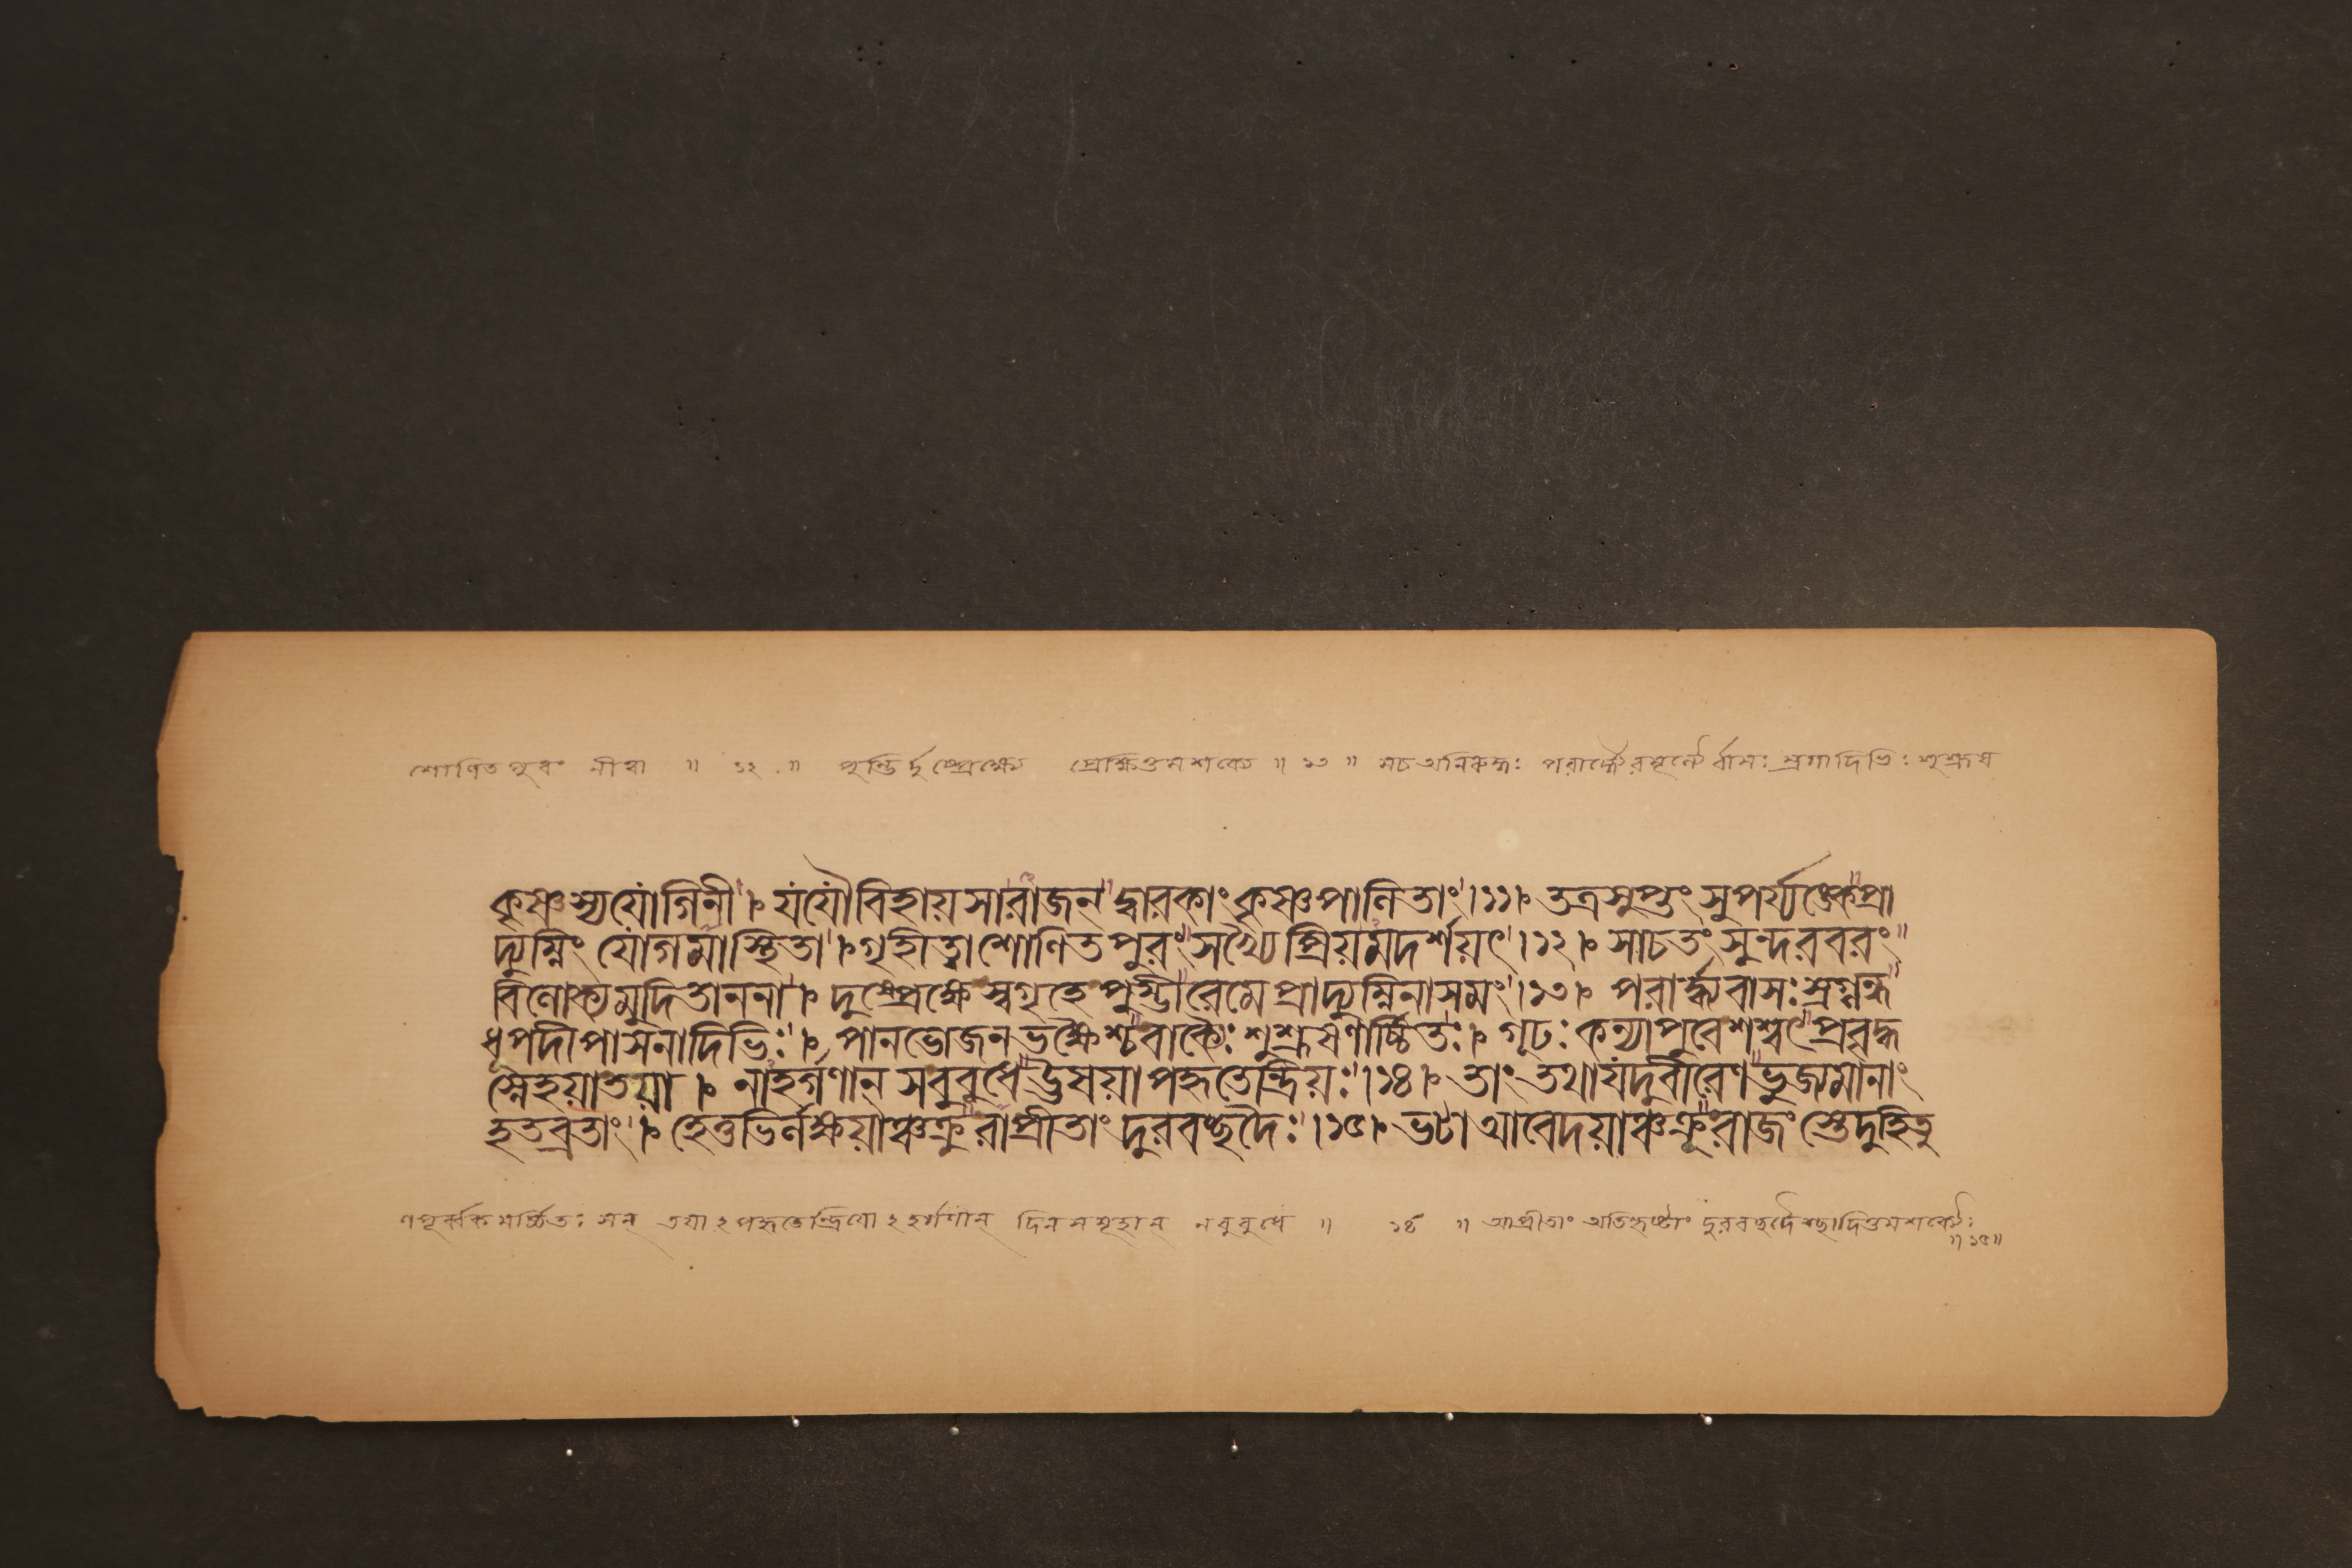 শোণিত পুরং নীত্বা ॥ ১২ ॥ পুম্ভির্দুষ্প্রেক্ষ্যে প্রেক্ষিতুমশক্যে ॥ ১৩ ॥ সচ অনিরুদ্ধঃ পরার্দ্ধ্যৈরমূল্যৈর্বাসঃ স্রগাদিভিঃ শুশ্রূষ
কৃষ্ণস্যযোগিনী । যযৌবিহায়সারাজন্ দ্বারকাং কৃষ্ণপালিতাং ।১১। তত্রসুপ্তং সুপর্য্যঙ্কেপ্রা
দ্যুম্নিং যোগমাস্থিতা । গৃহিত্বা শোণিত পুরং সখ্যৈ প্রিয়মদর্শয়ৎ ।১২। সাচতং সুন্দরবরং
বিলোক্যমুদিতাননা । দুষ্প্রেক্ষে স্বগৃহে পুম্ভীরেমে প্রাদ্যুম্নিনাসমং ।১৩। পরার্দ্ধ্যবাসঃ স্রগ্গন্ধ
ধূপদীপাসনাদিভিঃ । পানভোজন ভক্ষৈশ্চবাক্যৈঃ শুশ্রূষণার্চ্চিতঃ । গূঢঃ কন্যাপুরেশশ্বৎপ্রবৃদ্ধ
স্নেহয়াতয়া । নাহর্গণান্ সবুবুধে ঊষয়াপহৃতেন্দ্রিয়ঃ ।১৪। তাং তথাযদুবীরেণ ভুজ্যমানাং
হতব্রতাং । হেতুভির্লক্ষয়াঞ্চক্রু রাপ্রীতাং দুরবচ্ছদৈঃ ।১৫। ভটা আবেদয়াঞ্চক্রূ রাজংস্তেদুহিতু
ণপূর্ব্বকমর্চ্চিতঃ সন্ তয়াঽপহৃতেন্দ্রিয়োঽহর্গণান্ দিনসমূহান্ নবুবুধে ॥ ১৪ ॥ আপ্রীতাং অতিহৃষ্টাং দুরবছদৈশ্ছাদিতুমশক্যৈঃ
॥ ১৫ ॥